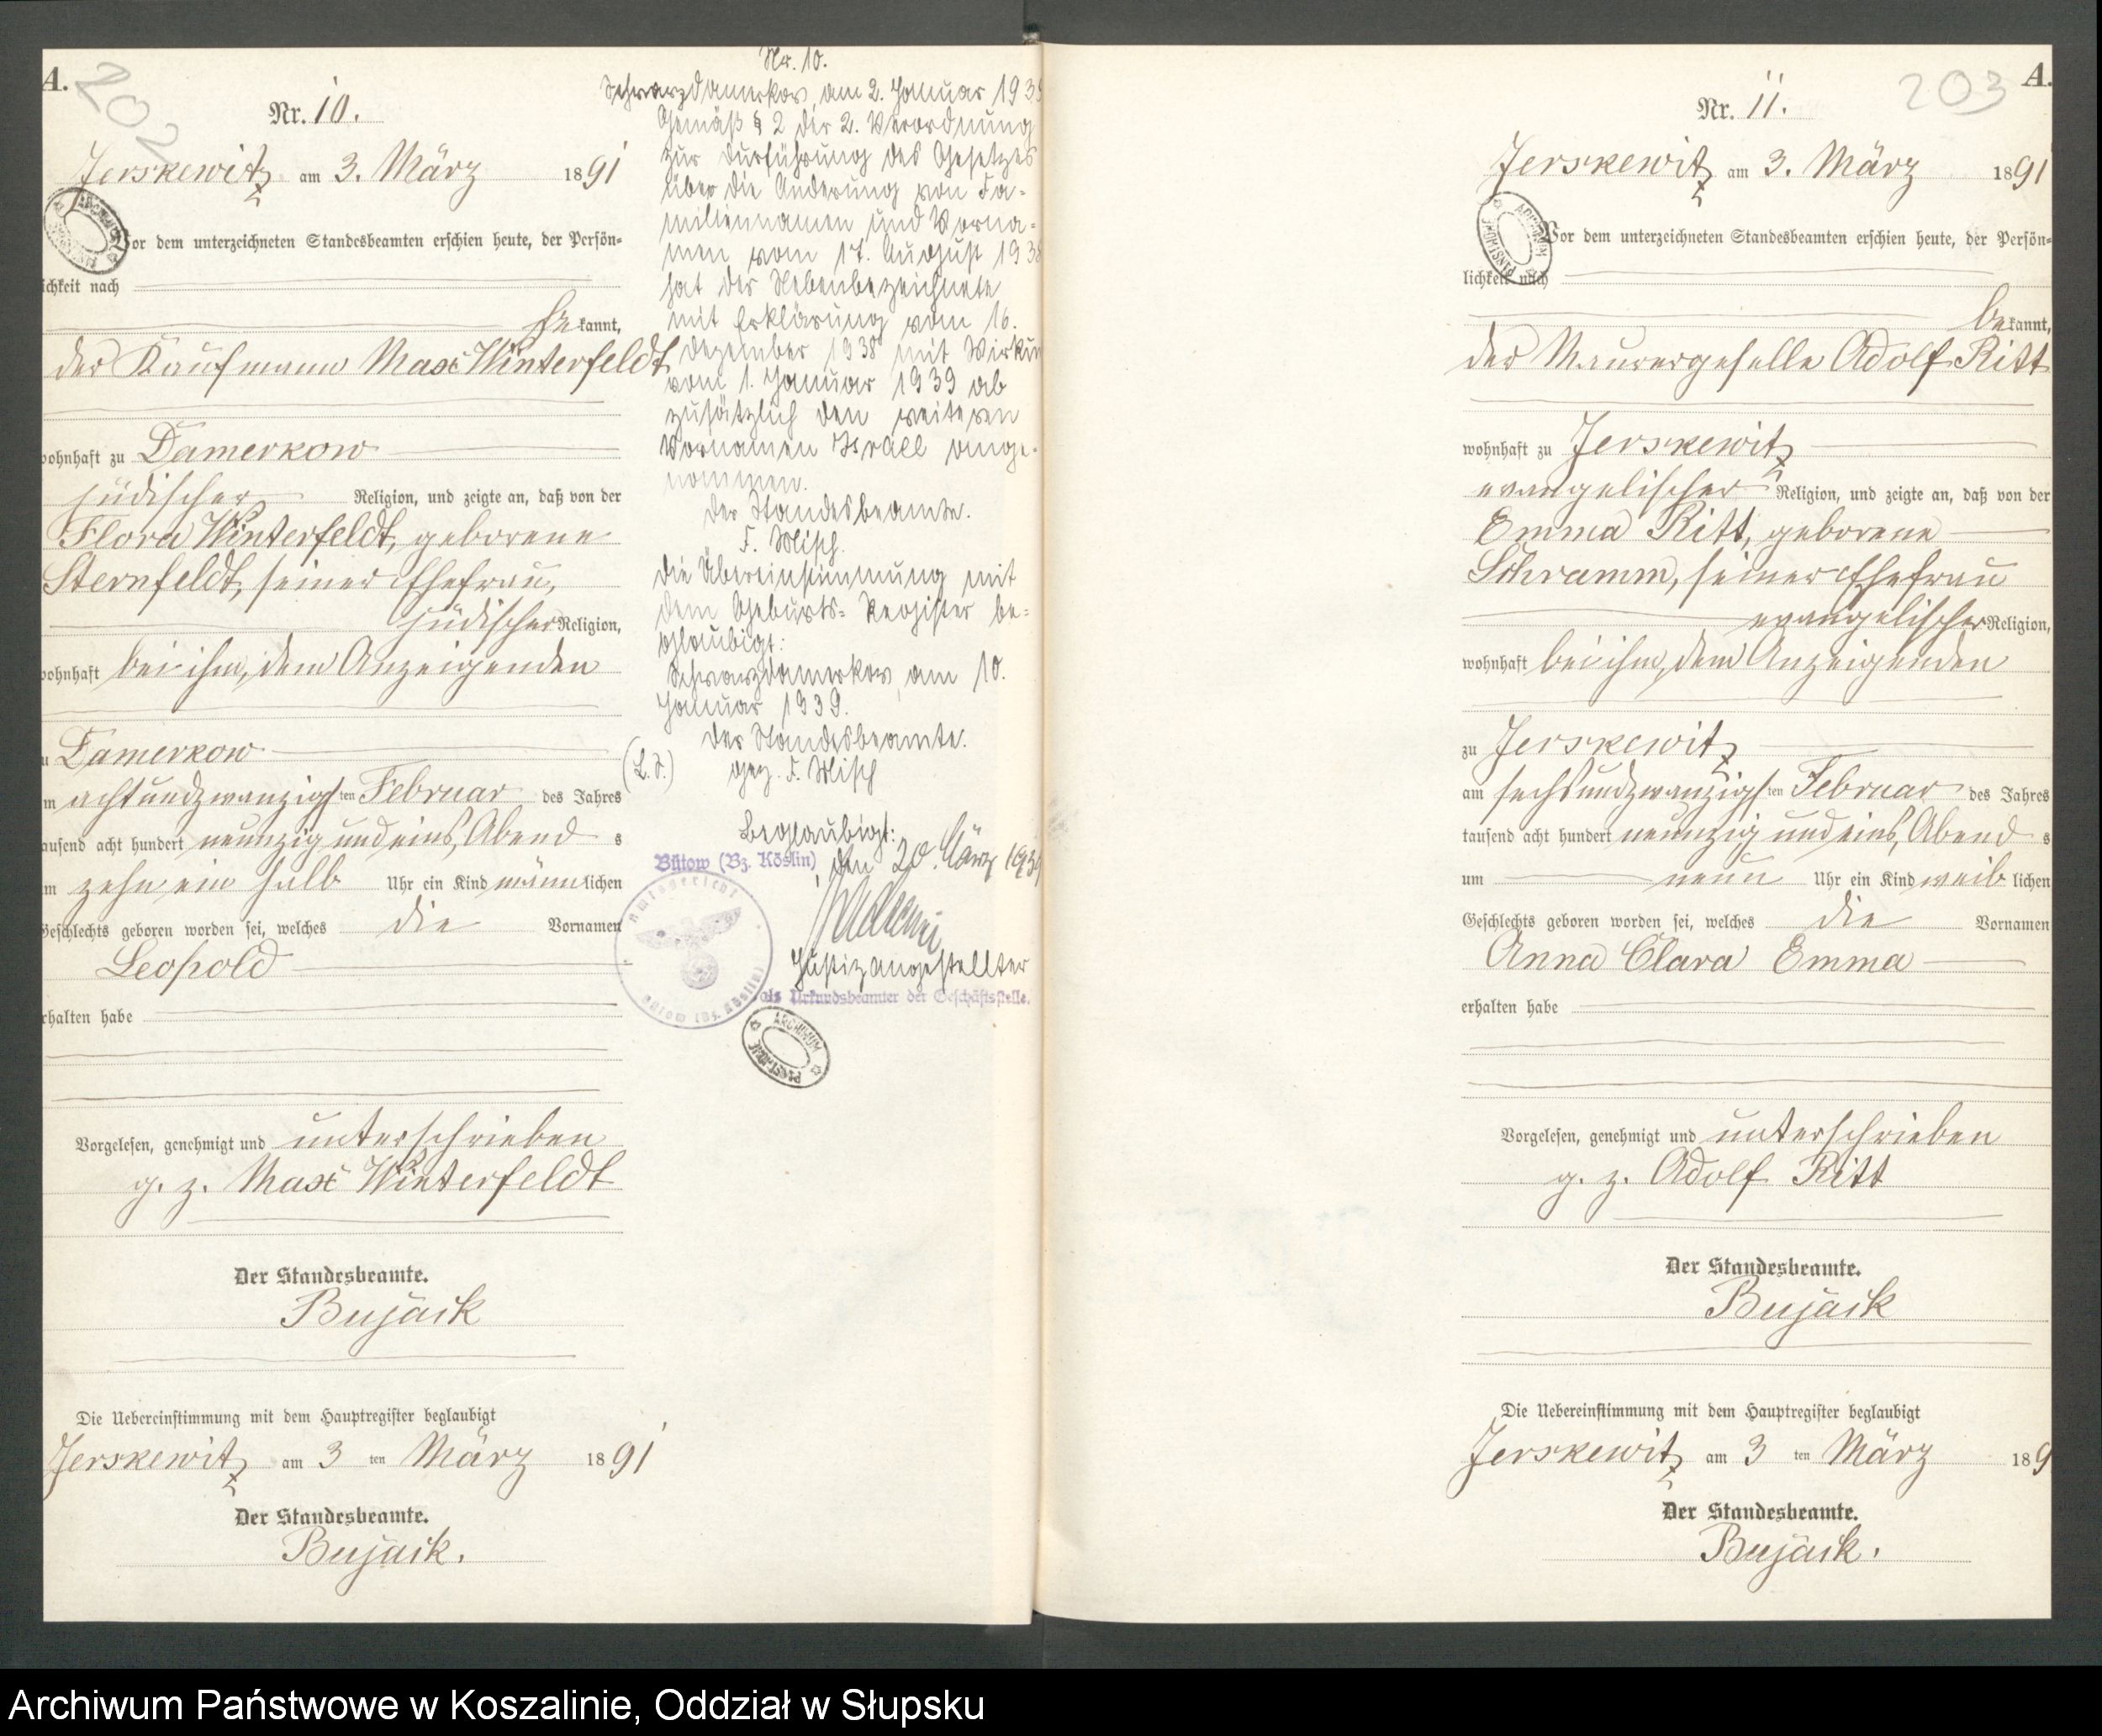 A.
202
Nr. 10.
Jerskewitz am 3. März 1891
or dem unterzeichneten Standesbeamten erschien heute, der Persön=
ichkeit nach
be kannt,
der Kaufmann Max Winterfeldt
wohnhaft zu Damerkow
jüdischer Religion, und zeigte an, daß von der
Flora Winterfeldt, geborene
Sternfeldt, seiner Ehefrau,
jüdischer Religion,
wohnhaft bei ihm, dem Anzeigenden
u Damerkow
m achtundzwanzigsten Februar des Jahres
ausend acht hundert neunzig und eins, Abend s
um zehn ein halb Uhr ein Kind männlichen
Geschlechts geboren worden sei, welches die Vornamen
Leopold
rhalten habe
Vorgelesen, genehmigt und unterschrieben
g. z. Max Winterfeldt
Der Standesbeamte.
Bujack
Die Uebereinstimmung mit dem Hauptregister beglaubigt
Jerskewitz am 3 ten März 1891
Der Standesbeamte.
Bujack.
Nr. 10.
Schwarzdamerkow, am 2. Januar 1939
Gemäß § 2 der 2. Verordnung
zur Durführung des Gesetzes
über die Änderung von Fa-
miliennamen und Vorna-
men vom 17. August 1938
hat der Nebenbezeichnete
mit Erklärung vom 16.
Dezember 1938 mit Wirkun
vom 1. Januar 1939 ab
zusätzlich den weiteren
Vornamen Israel ange-
nommen.
Der Standesbeamte.
F. Misch.
Die Übereinstimmung mit
dem Geburts= Register be=
glaubigt:
Schwarzdamerkow, am 10.
Januar 1939.
Der Standesbeamte.
(L. S.) gez. F. Misch
Beglaubigt:
Bütow (Bz. Köslin), den 20. März 1939
Amtsgericht
Bütow (Bz. Köslin)
Justizangestellter
als Urkundsbeamter der Geschäftsstelle.
ARCHIWUM
PAŃSTWOWE
A.
203
Nr. 11.
Jerskewitz am 3. März 1891
Vor dem unterzeichneten Standesbeamten erschien heute, der Persön=
lichkeit nach
be kannt,
der Maurergeselle Adolf Ritt
wohnhaft zu Jerskewitz
evangelischer Religion, und zeigte an, daß von der
Emma Ritt, geborene
Schramm, seiner Ehefrau
evangelischer Religion,
wohnhaft bei ihm, dem Anzeigenden
zu Jerskewitz
am sechsundzwanzigsten Februar des Jahres
tausend acht hundert neunzig und eins, Abend s
um neun Uhr ein Kind weib lichen
Geschlechts geboren worden sei, welches die Vornamen
Anna Clara Emma
erhalten habe
Vorgelesen, genehmigt und unterschrieben
g. z. Adolf Ritt
Der Standesbeamte.
Bujack
Die Uebereinstimmung mit dem Hauptregister beglaubigt
Jerskewitz am 3 ten März 189
Der Standesbeamte.
Bujack.
Archiwum Państwowe w Koszalinie, Oddział w Słupsku